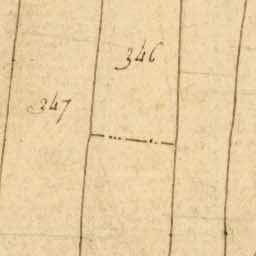 346
347